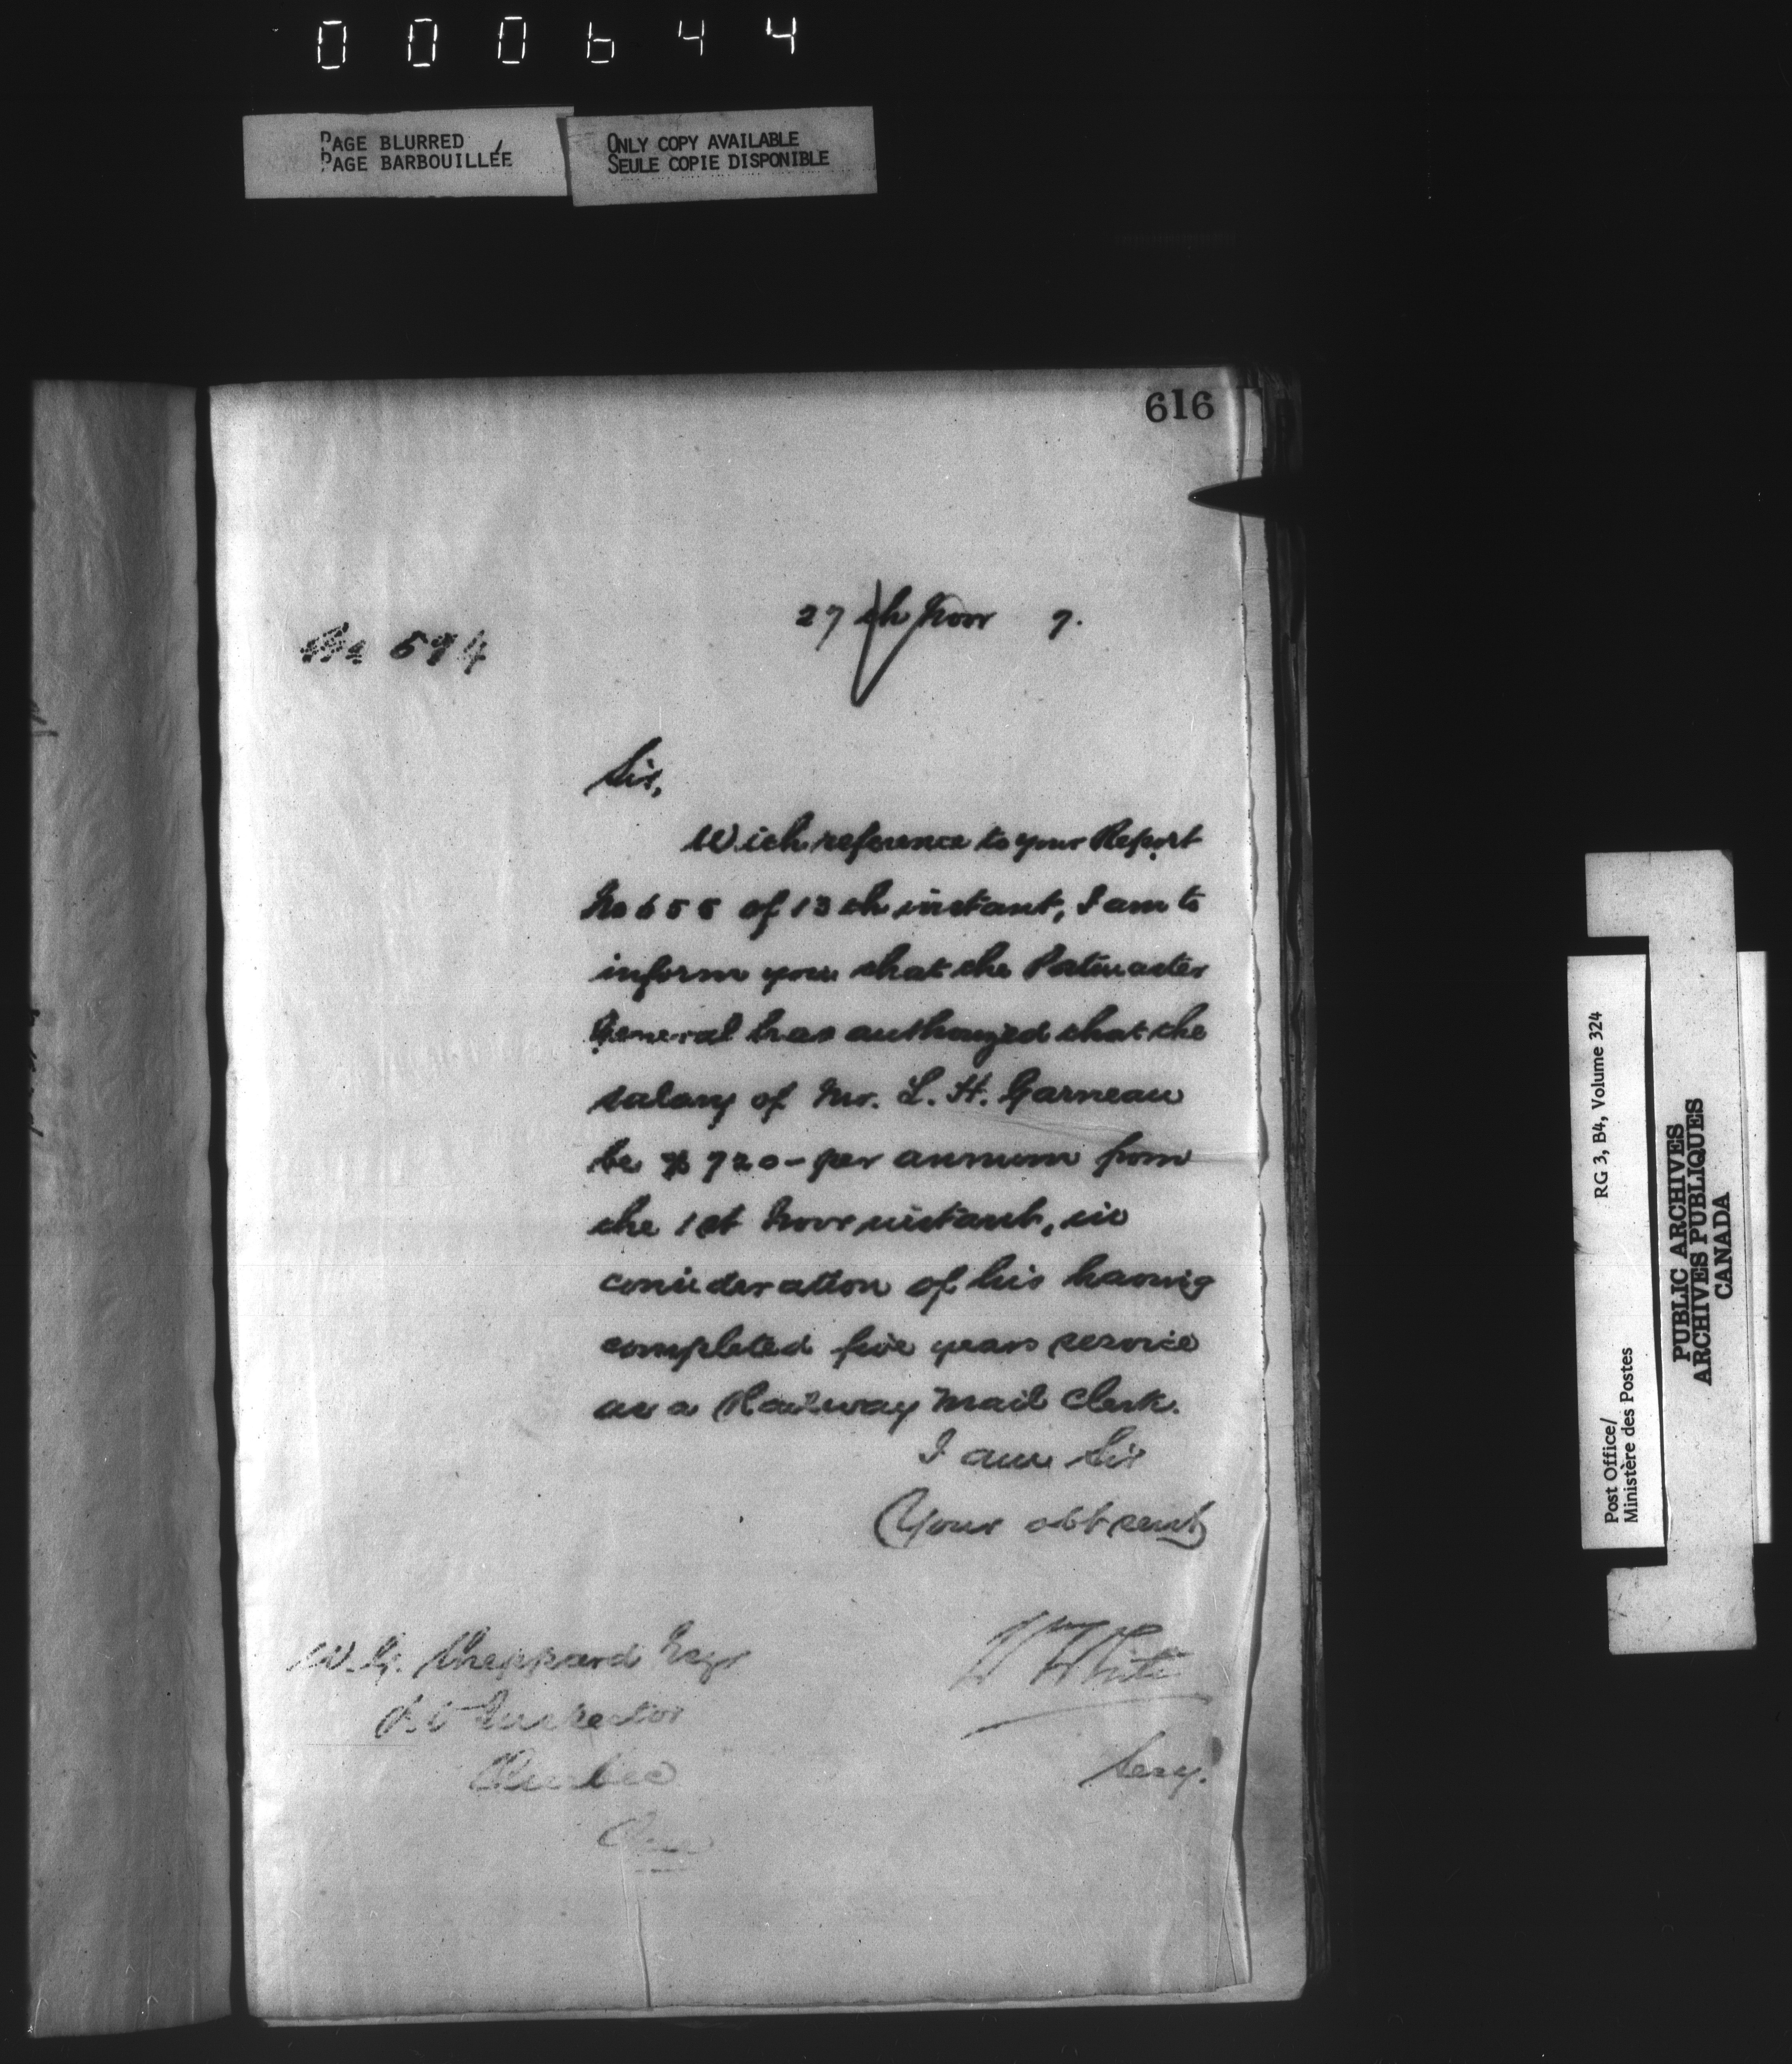 000644
PAGE BLURRED
PAGE BARBOUILLÉE
ONLY COPY AVAILABLE
SEULE COPIE DISPONIBLE
616
27th Novr 7.
No 594
Sir,
With reference to your Report
No 655 of 13th instant, I am to
inform you that the Postmaster
General has authorized that the
salary of Mr. L. H. Garneau
be $720- per annum from
the 1st Novr instant, in
consideration of his having
completed five years service
as a Railway Mail Clerk.
I am Sir
Your obt servt
Wm White
Secy.
W. G. Sheppard Esqr
P.O Inspector
Quebec
Que
RG 3, B4, Volume 324
Post Office/
Ministère des Postes
PUBLIC ARCHIVES
ARCHIVES PUBLIQUES
CANADA